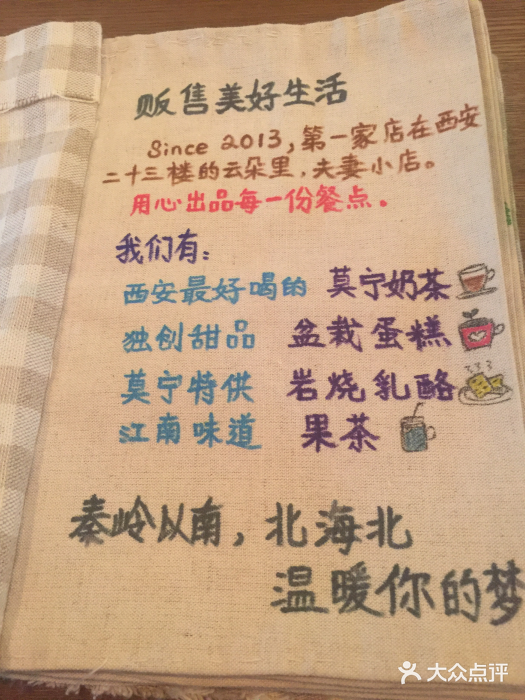 贩售美好生活
Since 2013,第一家店在西安
二十三楼的云朵里,夫妻小店。
用心出品每一份餐点。
我们有:
西安最好喝的 莫宁奶茶
独创甜品 盆栽蛋糕
莫宁特供 岩烧乳酪
江南味道 果茶
秦岭以南,北海北
温暖你的梦
大众点评